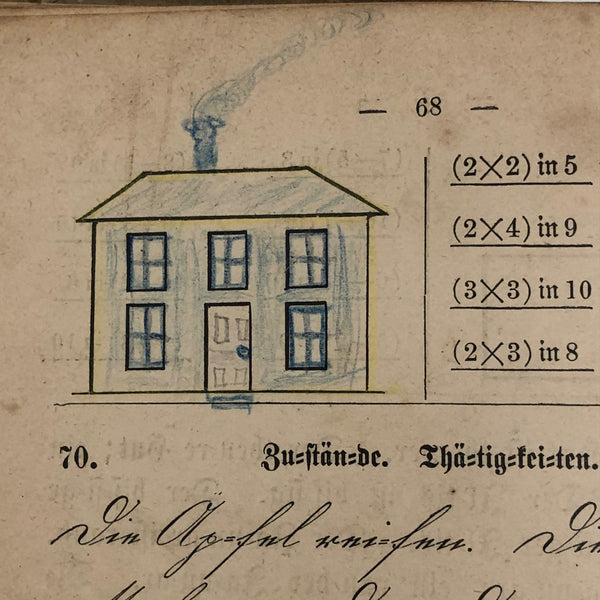 — 68 —
(2×2) in 5
(2×4) in 9
(3×3) in 10
(2×3) in 8
70. Zu=stän=de. Thä=tig=kei=ten.
Die Äp=fel rei=fen. Die